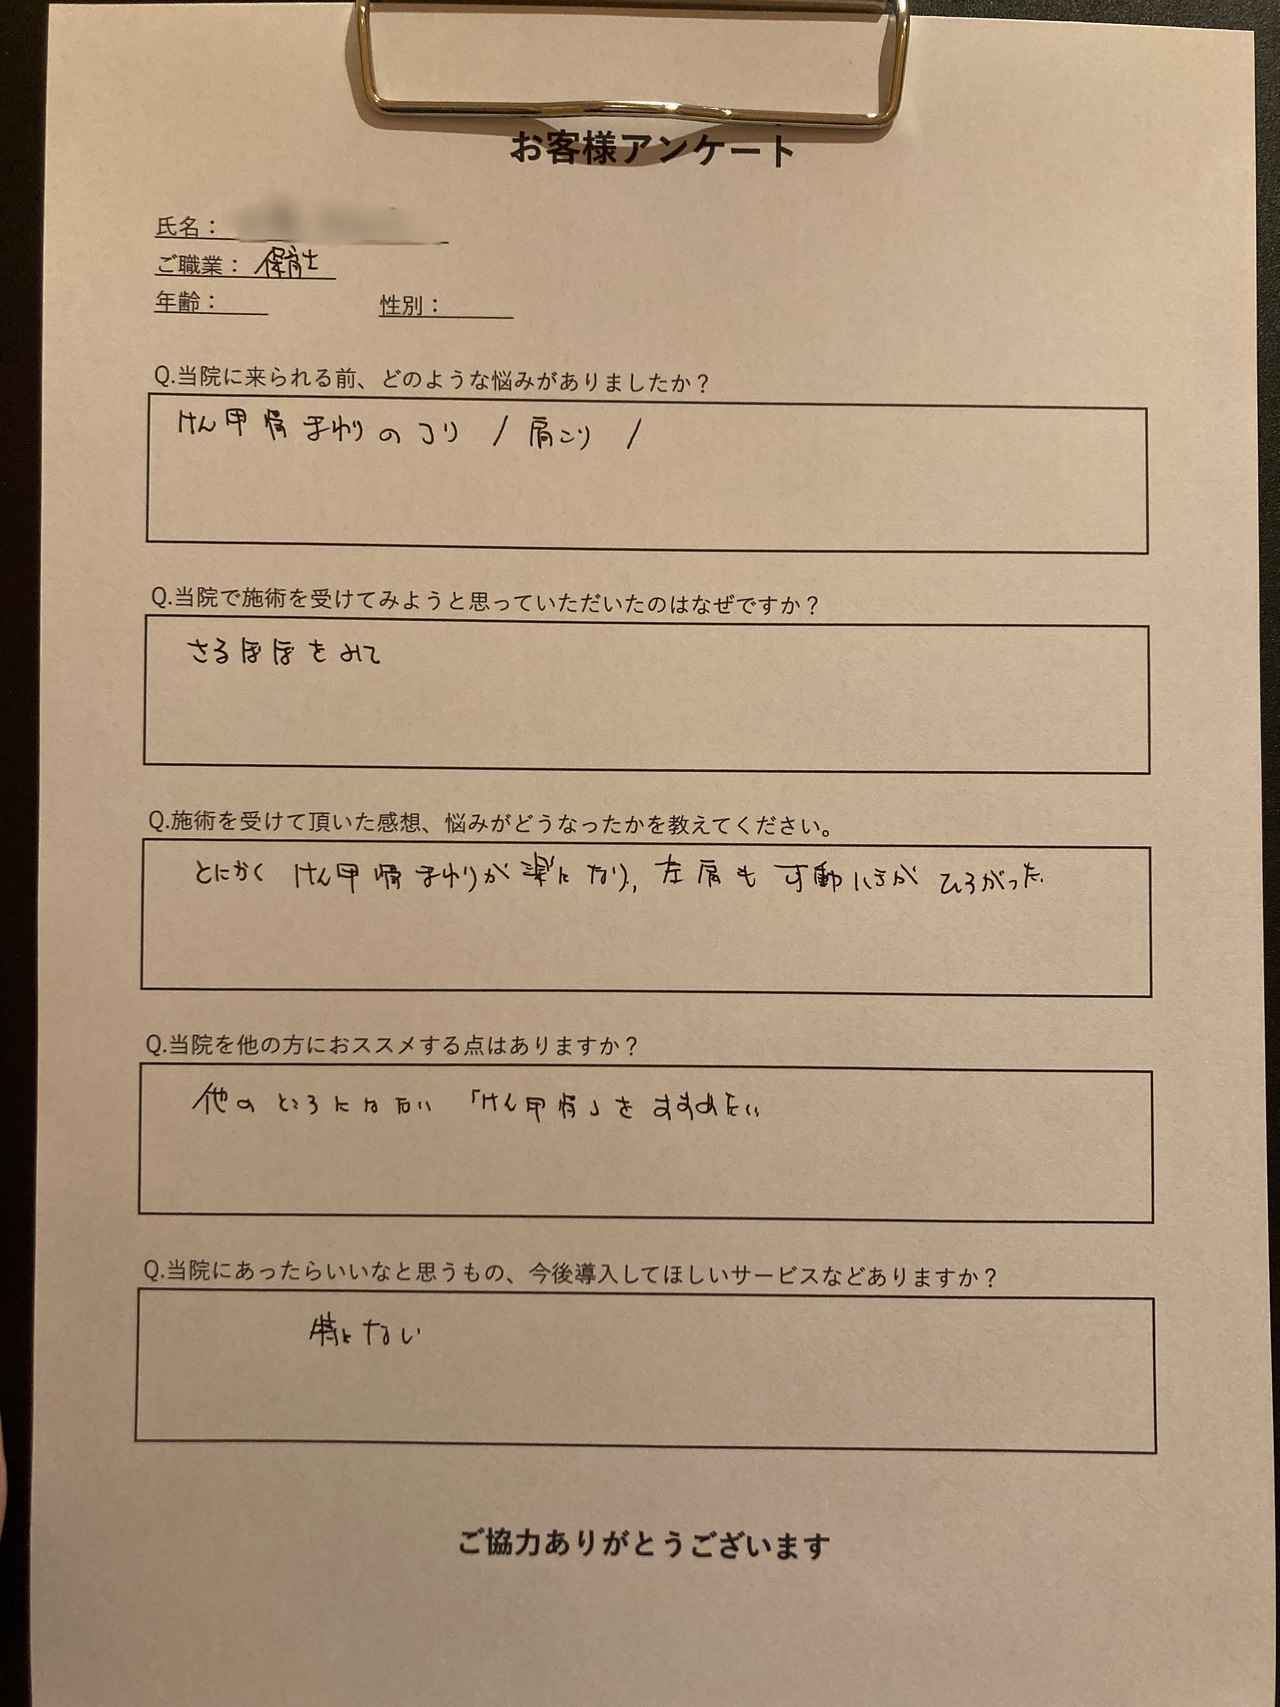 お客様アンケート
氏名：
ご職業： 保育士
年齢：　　　性別：
Q.当院に来られる前、どのような悩みがありましたか？
けん甲骨まわりのコリ / 肩こり /
Q.当院で施術を受けてみようと思っていただいたのはなぜですか？
さるぼぼをみて
Q.施術を受けて頂いた感想、悩みがどうなったかを教えてください。
とにかく けん甲骨まわりが楽になり、左肩も可動いきが ひろがった。
Q.当院を他の方におススメする点はありますか？
他のところにはない 「けん甲骨」をすすめたい
Q.当院にあったらいいなと思うもの、今後導入してほしいサービスなどありますか？
特にない
ご協力ありがとうございます